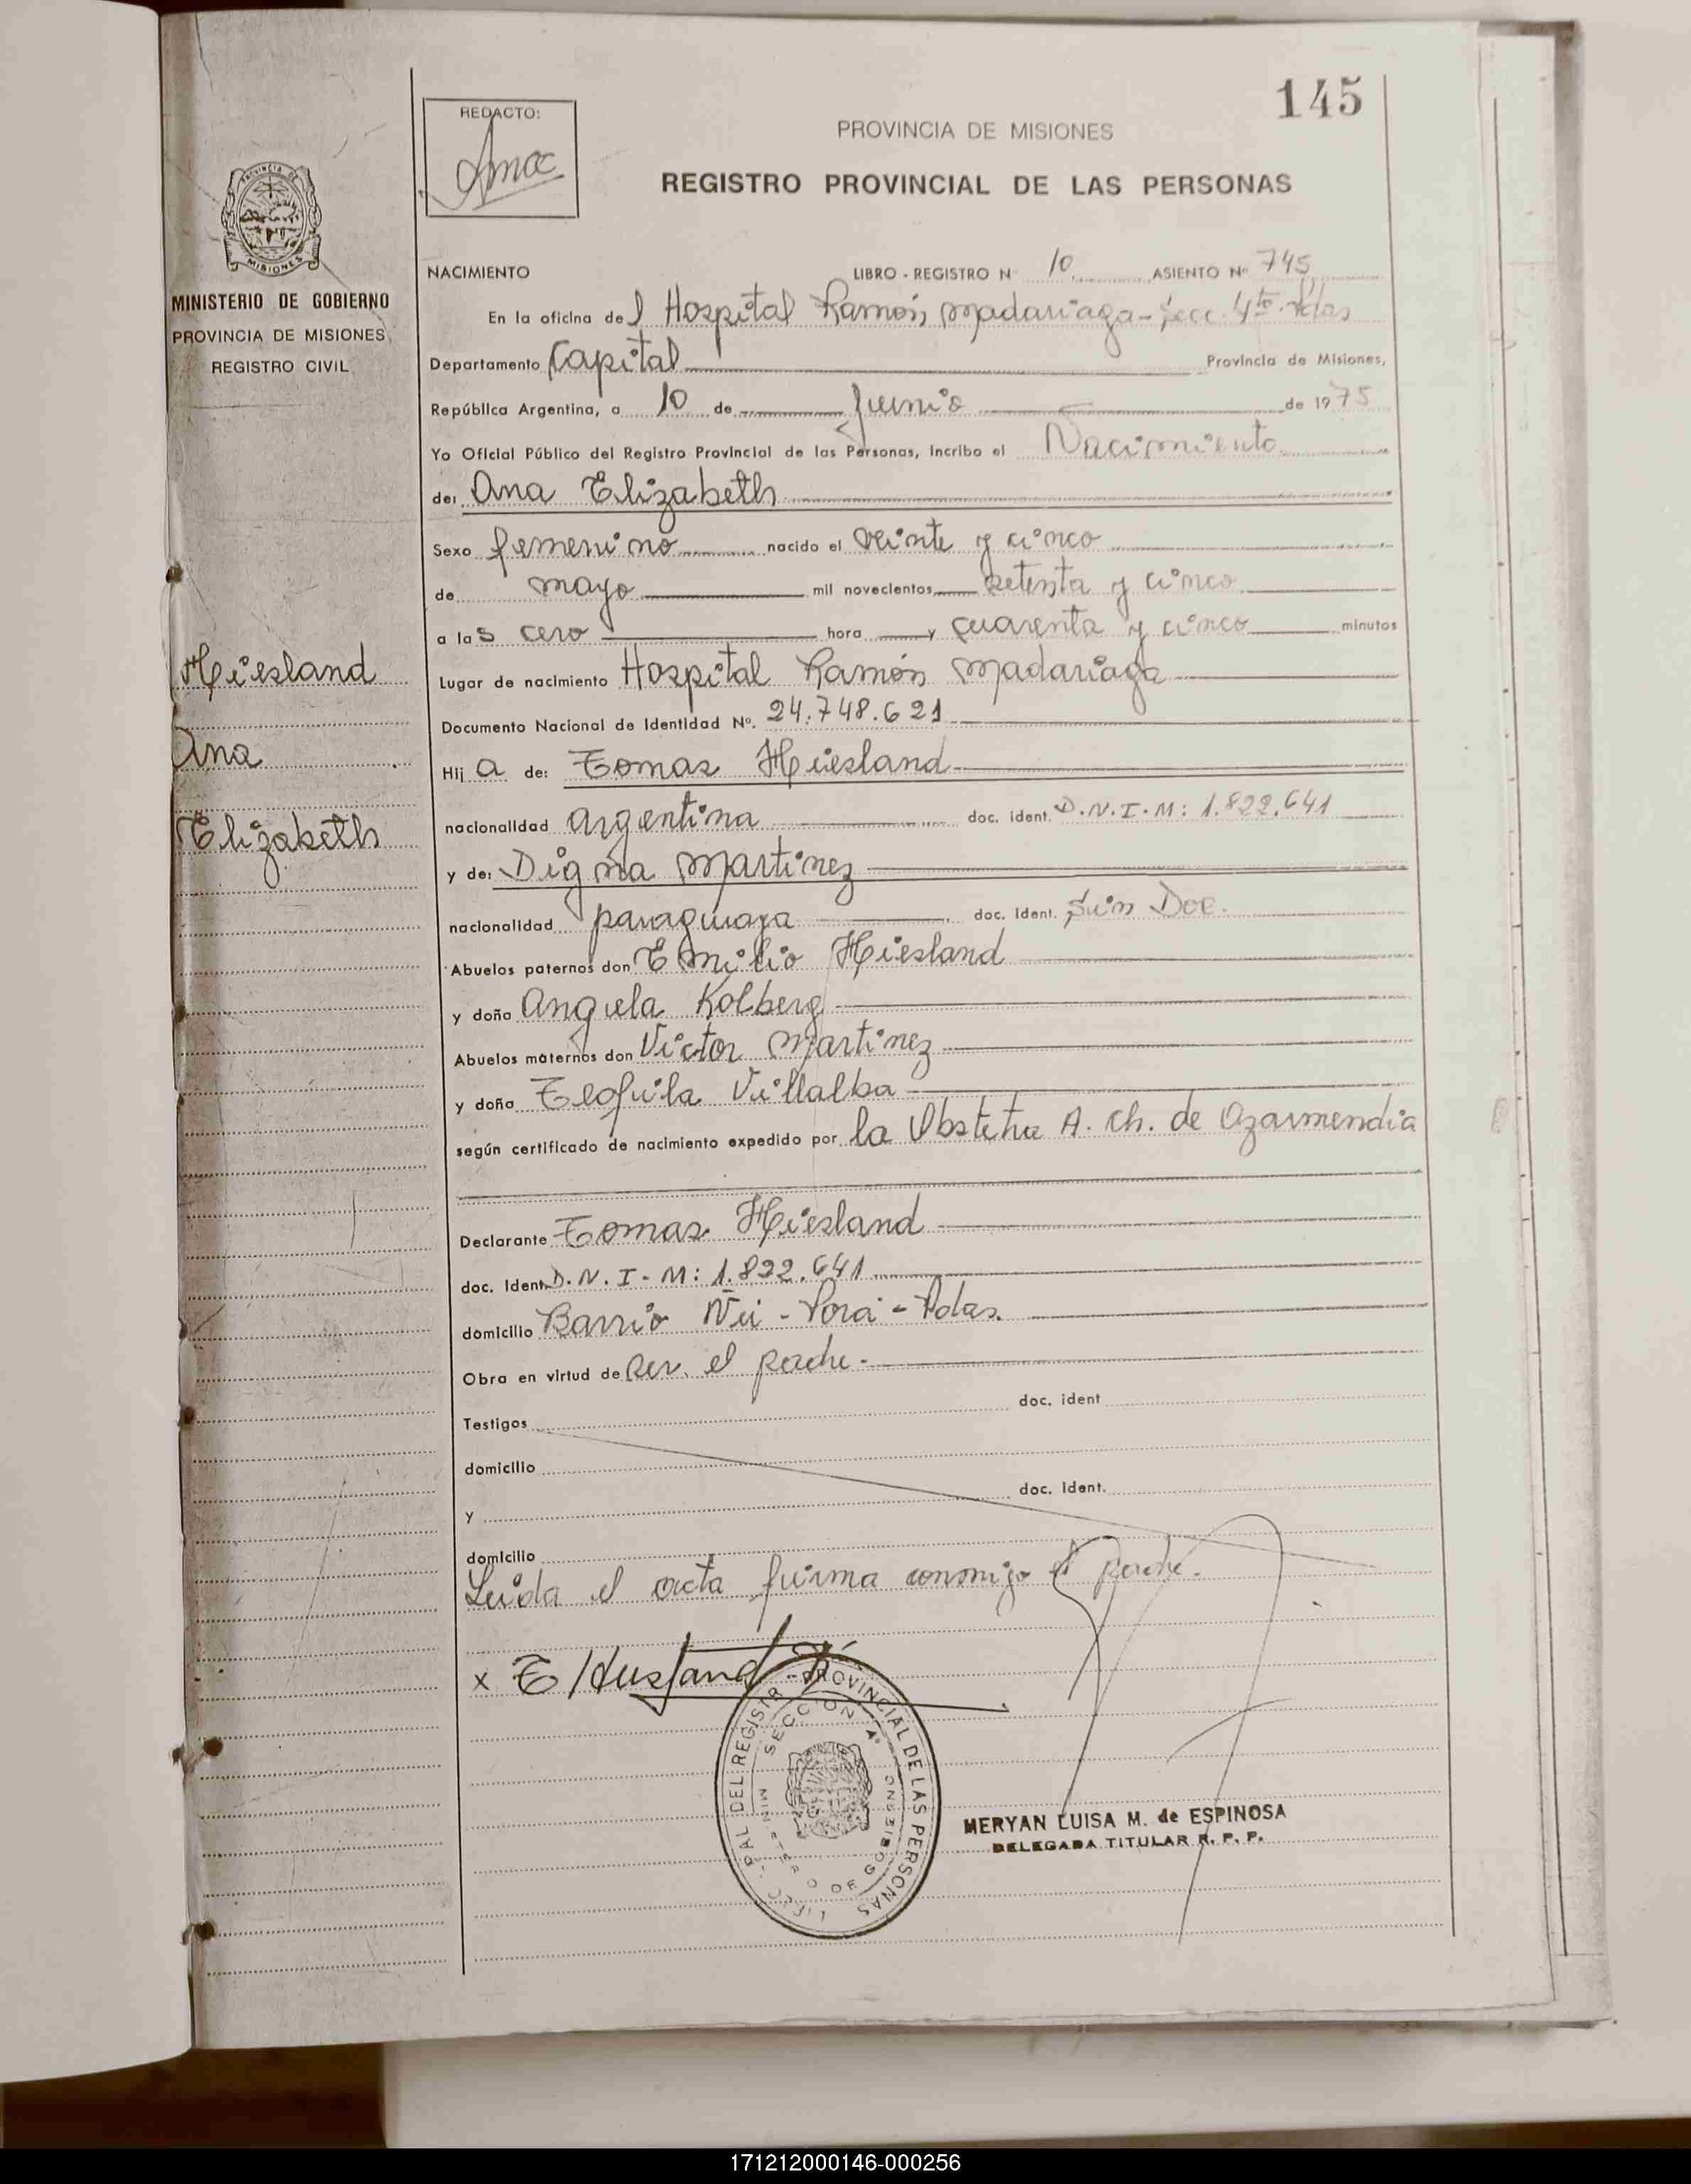 145
REDACTO:
PROVINCIA DE MISIONES
REGISTRO PROVINCIAL DE LAS PERSONAS
MISIONES
MINISTERIO DE GOBIERNO
PROVINCIA DE MISIONES
REGISTRO CIVIL
NACIMIENTO LIBRO - REGISTRO N° 10 ASIENTO Nº 745
En la oficina del Hospital Ramón Madariaga - Secc. 4to. Pdas
Departamento Capital Provincia de Misiones,
República Argentina, a 10 de Junio de 1975
Yo Oficial Público del Registro Provincial de las Personas, incribo el Nacimiento
de: Ana Elizabeth
Sexo femenino nacido el veinte y cinco
de mayo mil novecientos setenta y cinco
a las cero hora y cuarenta y cinco minutos
Hiesland
Ana
Elizabeth
Lugar de nacimiento Hospital Ramón Madariaga
Documento Nacional de Identidad Nº. 24.748.621
Hij a de: Tomas Hiesland
nacionalidad argentina doc. ident. D.N.I-M: 1.822.641
y de: Digna Martinez
nacionalidad paraguaya doc. ident. Sin Doc.
Abuelos paternos don Emilio Hiesland
y doña Angela Kolberg
Abuelos maternos don Victor Martinez
y doña Teofila Villalba
según certificado de nacimiento expedido por la Obstetra A. Ch. de Azarmendia
Declarante Tomas Hiesland
doc. Ident. D.N.I-M: 1.822.641
domicilio Barrio Ñu - Porá - Pdas.
Obra en virtud de ser el padre.-
Testigos doc. ident
domicilio
y doc. Ident.
domicilio
Leida el acta firma conmigo el padre.
x T Hiesland
PROVINCIAL DE LAS PERSONAS
SECCION 4ª
MERYAN LUISA M. de ESPINOSA
DELEGADA TITULAR R. P. P.
171212000146-000256